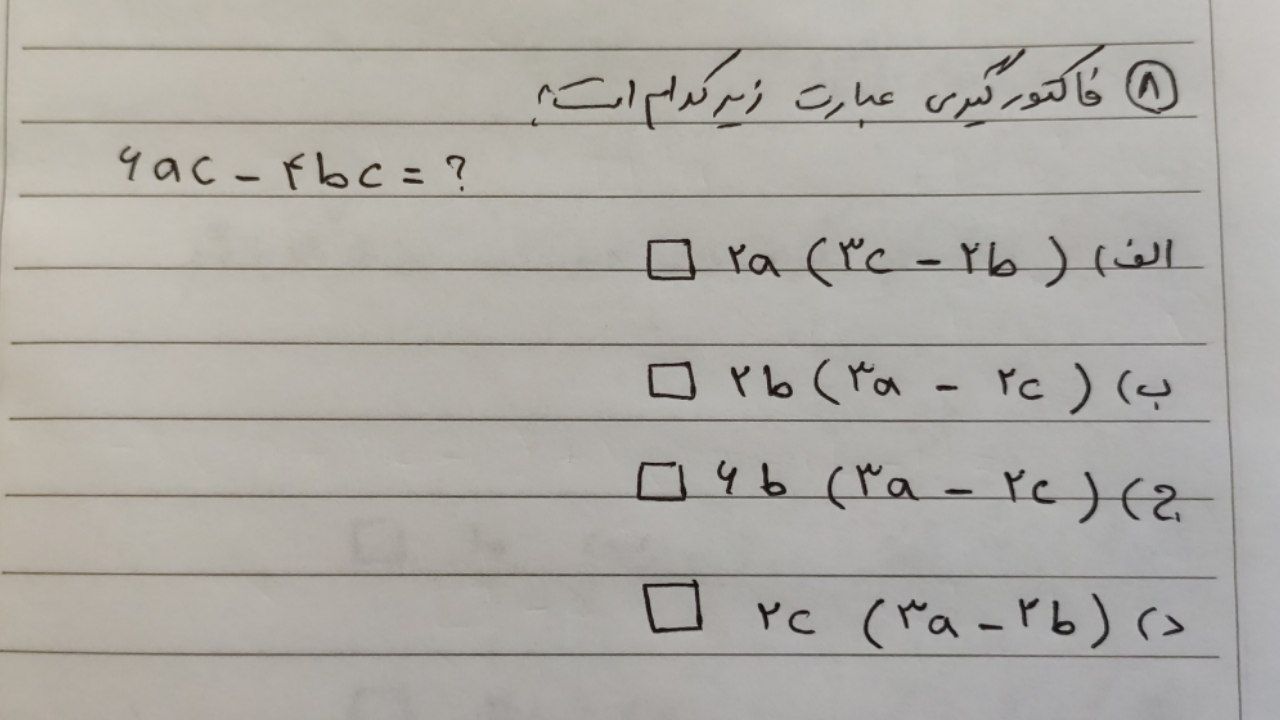 ۸ فاکتورگیری عبارت زیر کدام است؟
۶ac - ۴bc = ?
الف) ۲a (۳c - ۲b)
ب) ۲b (۳a - ۲c)
ج) ۶b (۳a - ۲c)
د) ۲c (۳a - ۲b)